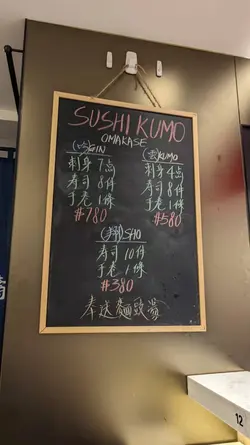 SUSHI KUMO
OMAKASE
GIN
刺身 7点
寿司 8件
手卷 1條
#780
(雲)KUMO
刺身 4点
寿司 8件
手卷 1條
#580
(翔)SHO
寿司 10件
手卷 1條
#380
奉送麵豉湯
12